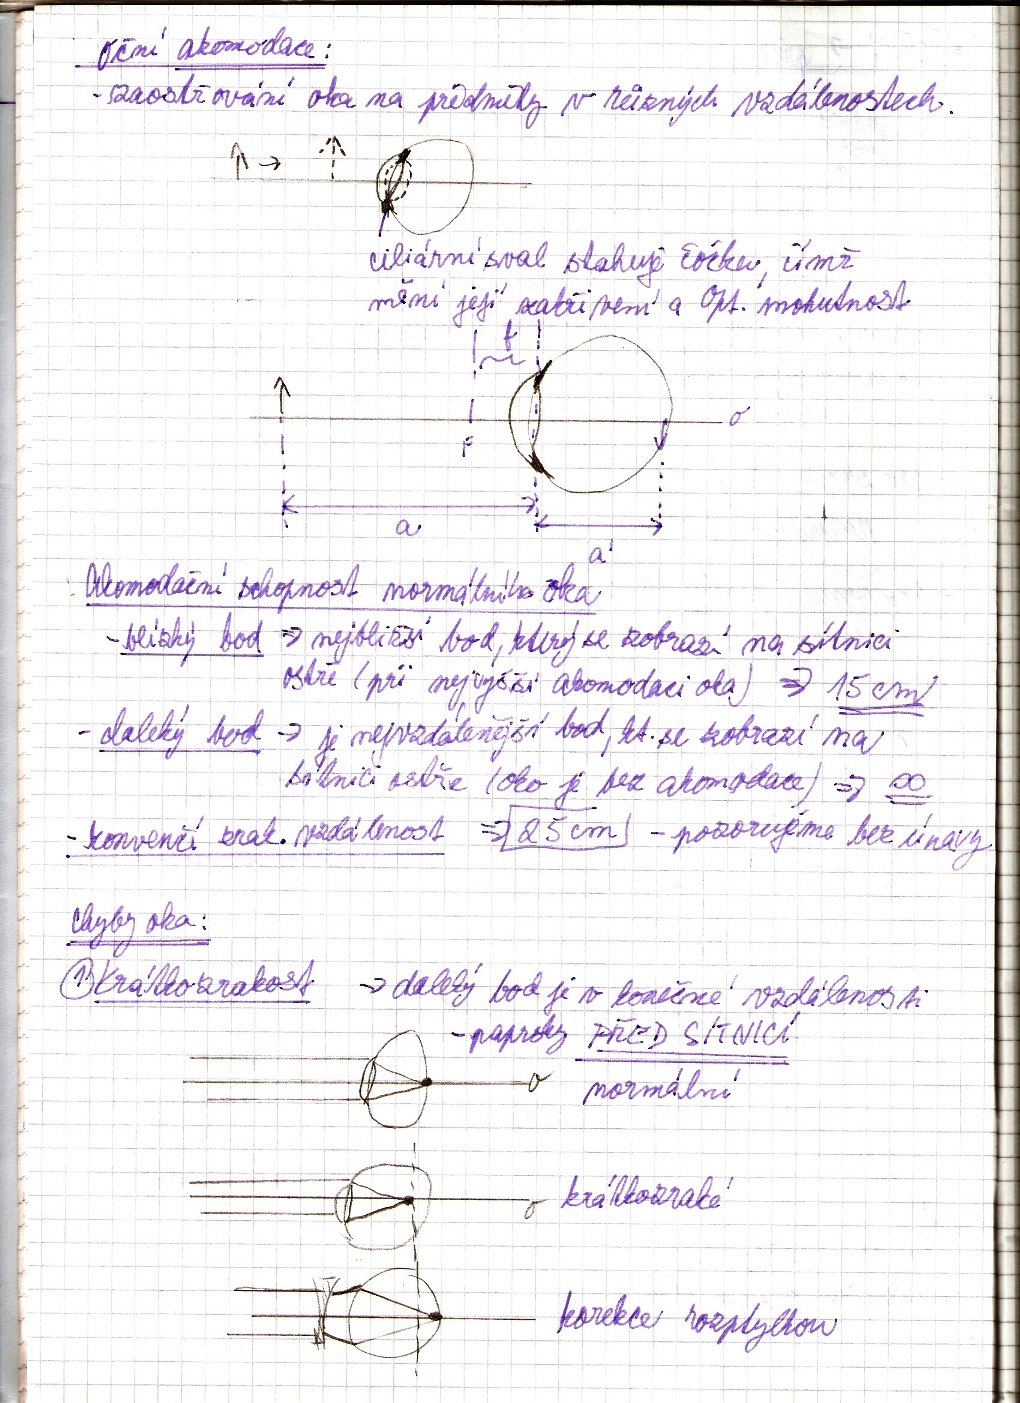 Oční akomodace:
- zaostřování oka na předměty v různých vzdálenostech.
ciliární sval stahuje čočku, čímž
mění její zakřivení a Opt. mohutnost
f
F
o
a
a'
Akomodační schopnost normálního oka
- blízký bod => nejbližší bod, který se zobrazí na sítnici
ostře (při nejvyšší akomodaci oka) => 15 cm
- daleký bod -> je nejvzdálenější bod, kt. se zobrazí na
sítnici ostře (oko je bez akomodace) => ∞
- konvenčí zrak. vzdálenost => 25 cm - pozorujeme bez únavy
Chyby oka:
1) Krátkozrakost -> daleký bod je v konečné vzdálenosti
- paprsky PŘED SÍTNICÍ
o
normální
o krátkozraké
korekce rozptylkou